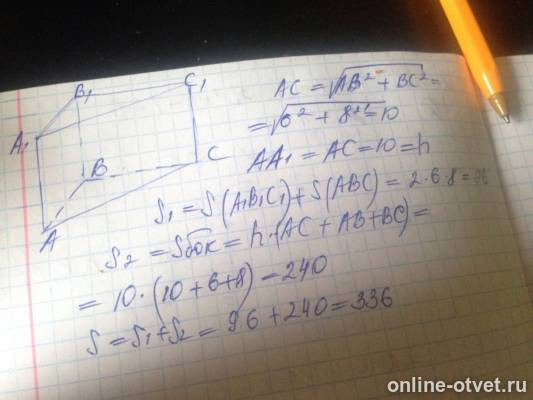 B₁
C₁
A₁
B
C
A
AC = √AB² + BC² =
= √6² + 8² = 10
AA₁ = AC = 10 = h
S₁ = S(A₁B₁C₁) + S(ABC) = 2·6·8 = 96
S₂ = Sбок = h·(AC + AB + BC) =
= 10·(10 + 6 + 8) = 240
S = S₁ + S₂ = 96 + 240 = 336
online-otvet.ru